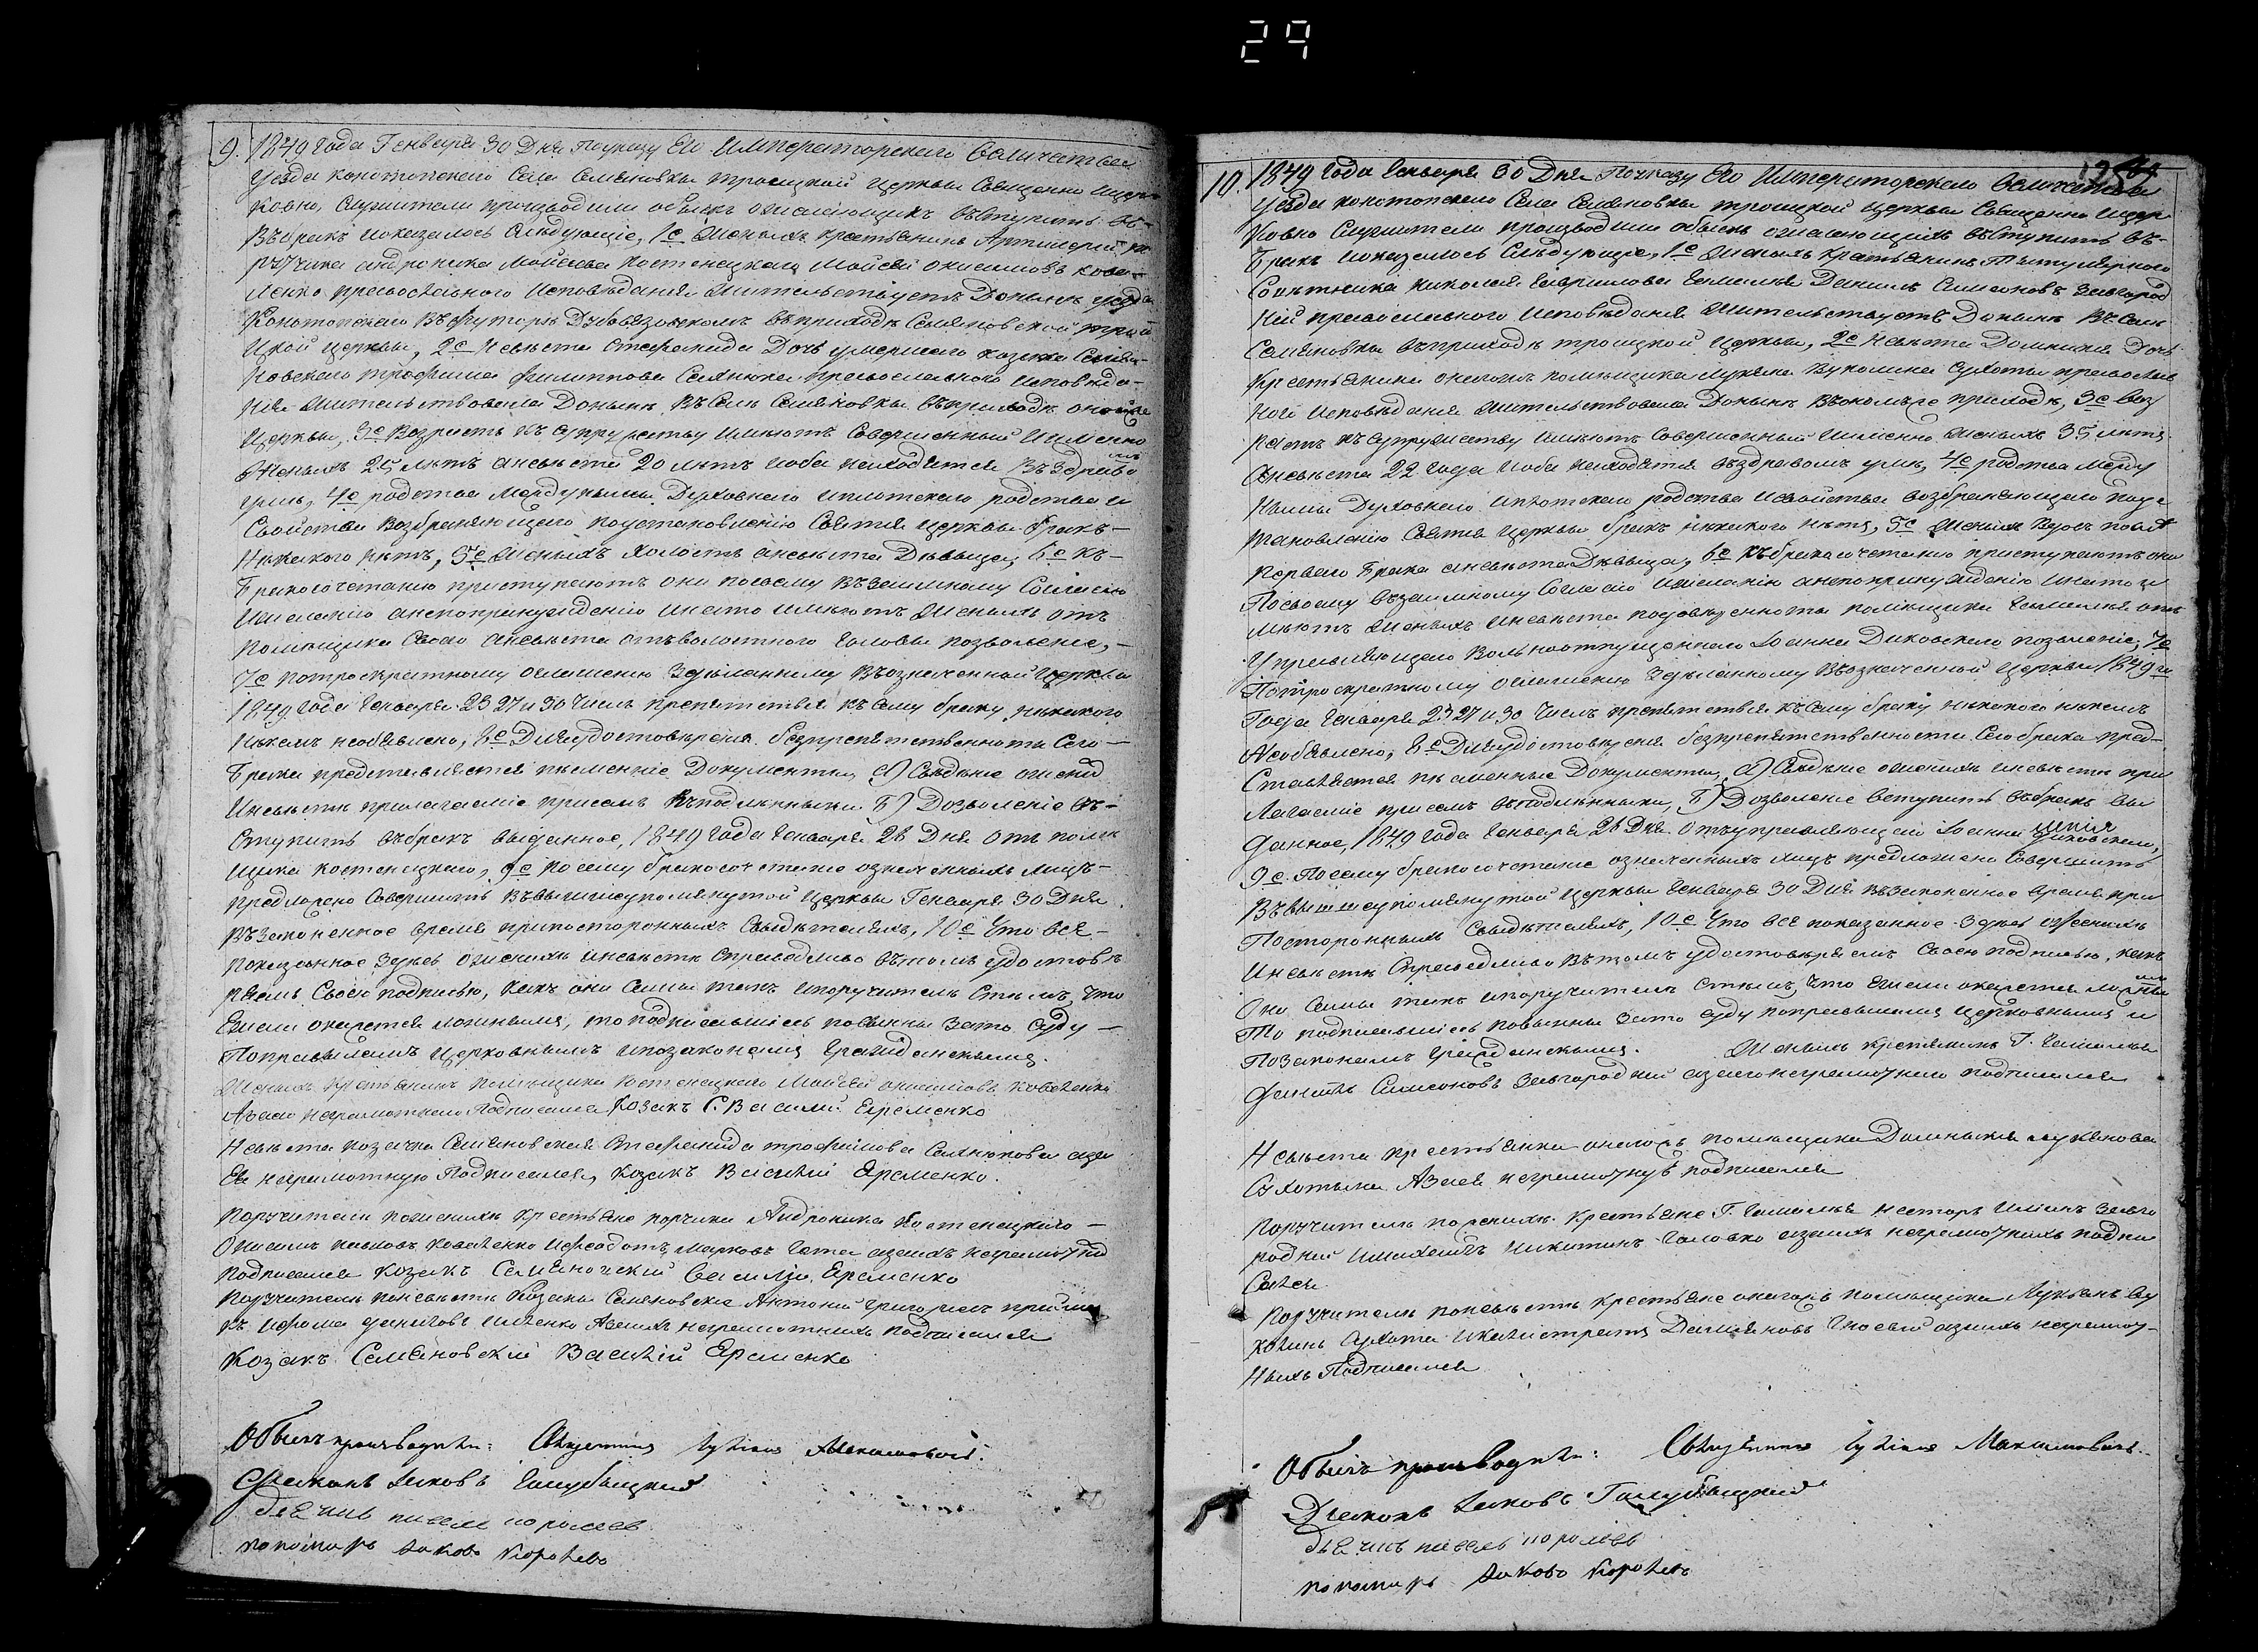 29
9. 1849 года Генваря 30 Дня По указу Его Императорского Величества
уезда конотопского села Семяновки троицкой церкви Священно Церк
ковно служители производили обыск о желающихъ вступить въ
въ бракъ и оказалось следующее, 1е Женихъ крестьянинъ Артилерий по
ручика андроника Мойсеева костенецкаго Мойсей онисимовъ кова-
ленко православного исповедания жительствуетъ доныне уезда
Конотопского въ хуторе Дубовязовскомъ въ приходе Семяновской трои
цкой церкви, 2е Невеста Стефанида Дочь умершего козака Семя-
новского трофима филиппова Самнюка православного исповеда-
ния жительствовала доныне въ селе Семяновки въ приходе оной же
церкви, 3е Возрастъ къ супружеству имеютъ совершенный и именно
женихъ 25 летъ а невеста 20 летъ и оба находятся въ здравомъ
уме, 4е родства между ними духовного и плотского родства и
свойства возбраняющего по установлению Святыя церкви бракъ
никакого нетъ, 5е женихъ холостъ а невеста девица, 6е къ
бракосочетанию приступаютъ они по своему взаимному согласию
и желанию а не по принуждению и на то имеютъ женихъ отъ
помещика своего а невеста отъ волостного головы позволение,
7е по троекратному оглашению зделанному въ означенной церкви
1849 года Генваря 23 27 и 30 числъ препятствия къ сему браку никакого
никемъ необявлено, 8е Для удостоверения безпрепятственности сего
брака представляется писменние документы, А) Сведение о женихе
и невесте прилагаемие при семъ въ подлиннике Б) Дозволение въ-
ступить въ бракъ выданное, 1849 года Генваря 28 Дня отъ поме
щика костенецкаго, 9е По сему бракосочетание означенныхъ лицъ
предложено совершить въ вышеупомянутой церкви Генваря 30 Дня
въ законенное время при посторонныхъ свидетеляхъ, 10е Что все
показанное здесь о женихе и невесте справедливо въ томъ удостове
ряемъ своею подписью, какъ они сами такъ и поручители съ темъ, что
ежели окажется ложнымъ, то подписавшиесь повинны за то суду
по правиламъ церковнымъ и по законамъ гражданскимъ.
Женихъ крестьянинъ помещика Костенецкого Мойсей онисимовъ Коваленко
А за его неграмотного подписался Козакъ С. Василий Еременко
Невеста козачка Семяновская Стефанида трофимова Самнюкова а за
ее неграмотную подписался, козакъ Василий Еременко.
Поручители по женихе крестьяне порчика Андроника Костенецкого
Онисимъ павловъ Коваленко и Феодотъ Марковъ а за ихъ неграмотнихъ
подписался козакъ Семяновский Василий Еременко
Поручители по невесте козаки Семяновские Антоний Григориевъ
и Фома даниловъ а за ихъ неграмотнихъ подписался
Козакъ Семяновский Василий Еременко
Обыскъ производили: Священникъ Максимовичъ.
Диаконъ Иаковъ Голубицкий
дьячикъ
пономарь Иаковъ Королевъ
10. 1849 года Генваря 30 Дня По указу Его Императорского Величества
уезда конотопского села Семяновки троицкой церкви Священно Церк
ковно служители производили обыск о желающихъ вступить въ
бракъ и оказалось следующее, 1е Женихъ крестьянинъ титулярного
советника николая Гавриилова Гамалеи Даниилъ Симеоновъ Завгород
ний православного исповедания жительствуетъ доныне въ селе
Семяновки въ приходе троицкой церкви, 2е невеста Домникия Дочь
крестьянина оного же помещика Лукяна Вуколина Сухоты православ
ной исповедания жительствовала доныне въ ономъ же приходе, 3е Воз
растъ къ супружеству имеютъ совершенный и именно женихъ 35 летъ
а невеста 22 года и оба находятся въ здравомъ уме, 4е родства между
ними духовного и плотского родства и свойства возбраняющего по ус
тановлению Святыя церкви бракъ никакого нетъ, 5е Женихъ вдовъ после
первого брака а невеста девица, 6е къ бракосочетанию приступаютъ они
по своему взаимному согласию и желанию а не по принуждению и на то и
меютъ женихъ и невеста помещика Гамалея отъ
управляющего вольноотпущенного Иоанна Диковского позволение, 7е
по троекратному оглашению зделанному въ означенной церкви 1849 го
года Генваря 23 27 и 30 числъ препятствия къ сему браку никакого никемъ
необявлено, 8е Для удостоверения безпрепятственности сего брака пред-
ставляется писменные документы, А) Сведение о женихе и невесте при
лагаемие при семъ въ подлиннике, Б) Дозволение вступить въ бракъ вы
данное, 1849 года Генваря 28 Дня отъ управляющего имения Иоанна Диковского,
9е По сему бракосочетание означенныхъ лицъ предложено совершить
въ вышеупомянутой церкви Генваря 30 Дня въ законенное время при
посторонныхъ свидетеляхъ, 10е Что все показанное здесь о женихе
и невесте справедливо въ томъ удостоверяемъ своею подписью, какъ
они сами такъ и поручители съ темъ, что ежели окажется ложнымъ
то подписавшиесь повинны за то суду по правиламъ церковнымъ и
по законамъ гражданскимъ. Женихъ крестянинъ Г. Гамалеи
Даниилъ Симеоновъ Завгородний а за его неграмотного подписался
Невеста крестьянка оного же помещика Домникия лукянова
Сухотына А за ее неграмотную подписался
Поручители по женихе крестьяне Г. Гамалеи Несторъ Завго
родний и Никитинъ Головко а за ихъ неграмотнихъ подпи
сался
Поручители по невесте крестьяне оного же помещика Лукянъ Ву
колинъ Сухота и Калистратъ Дамияновъ а за ихъ неграмот-
ныхъ Подписался
Обыскъ производили: Священникъ Максимовичъ.
Диаконъ Иаковъ Голубицкий
дьячикъ
пономарь Иаковъ Королевъ